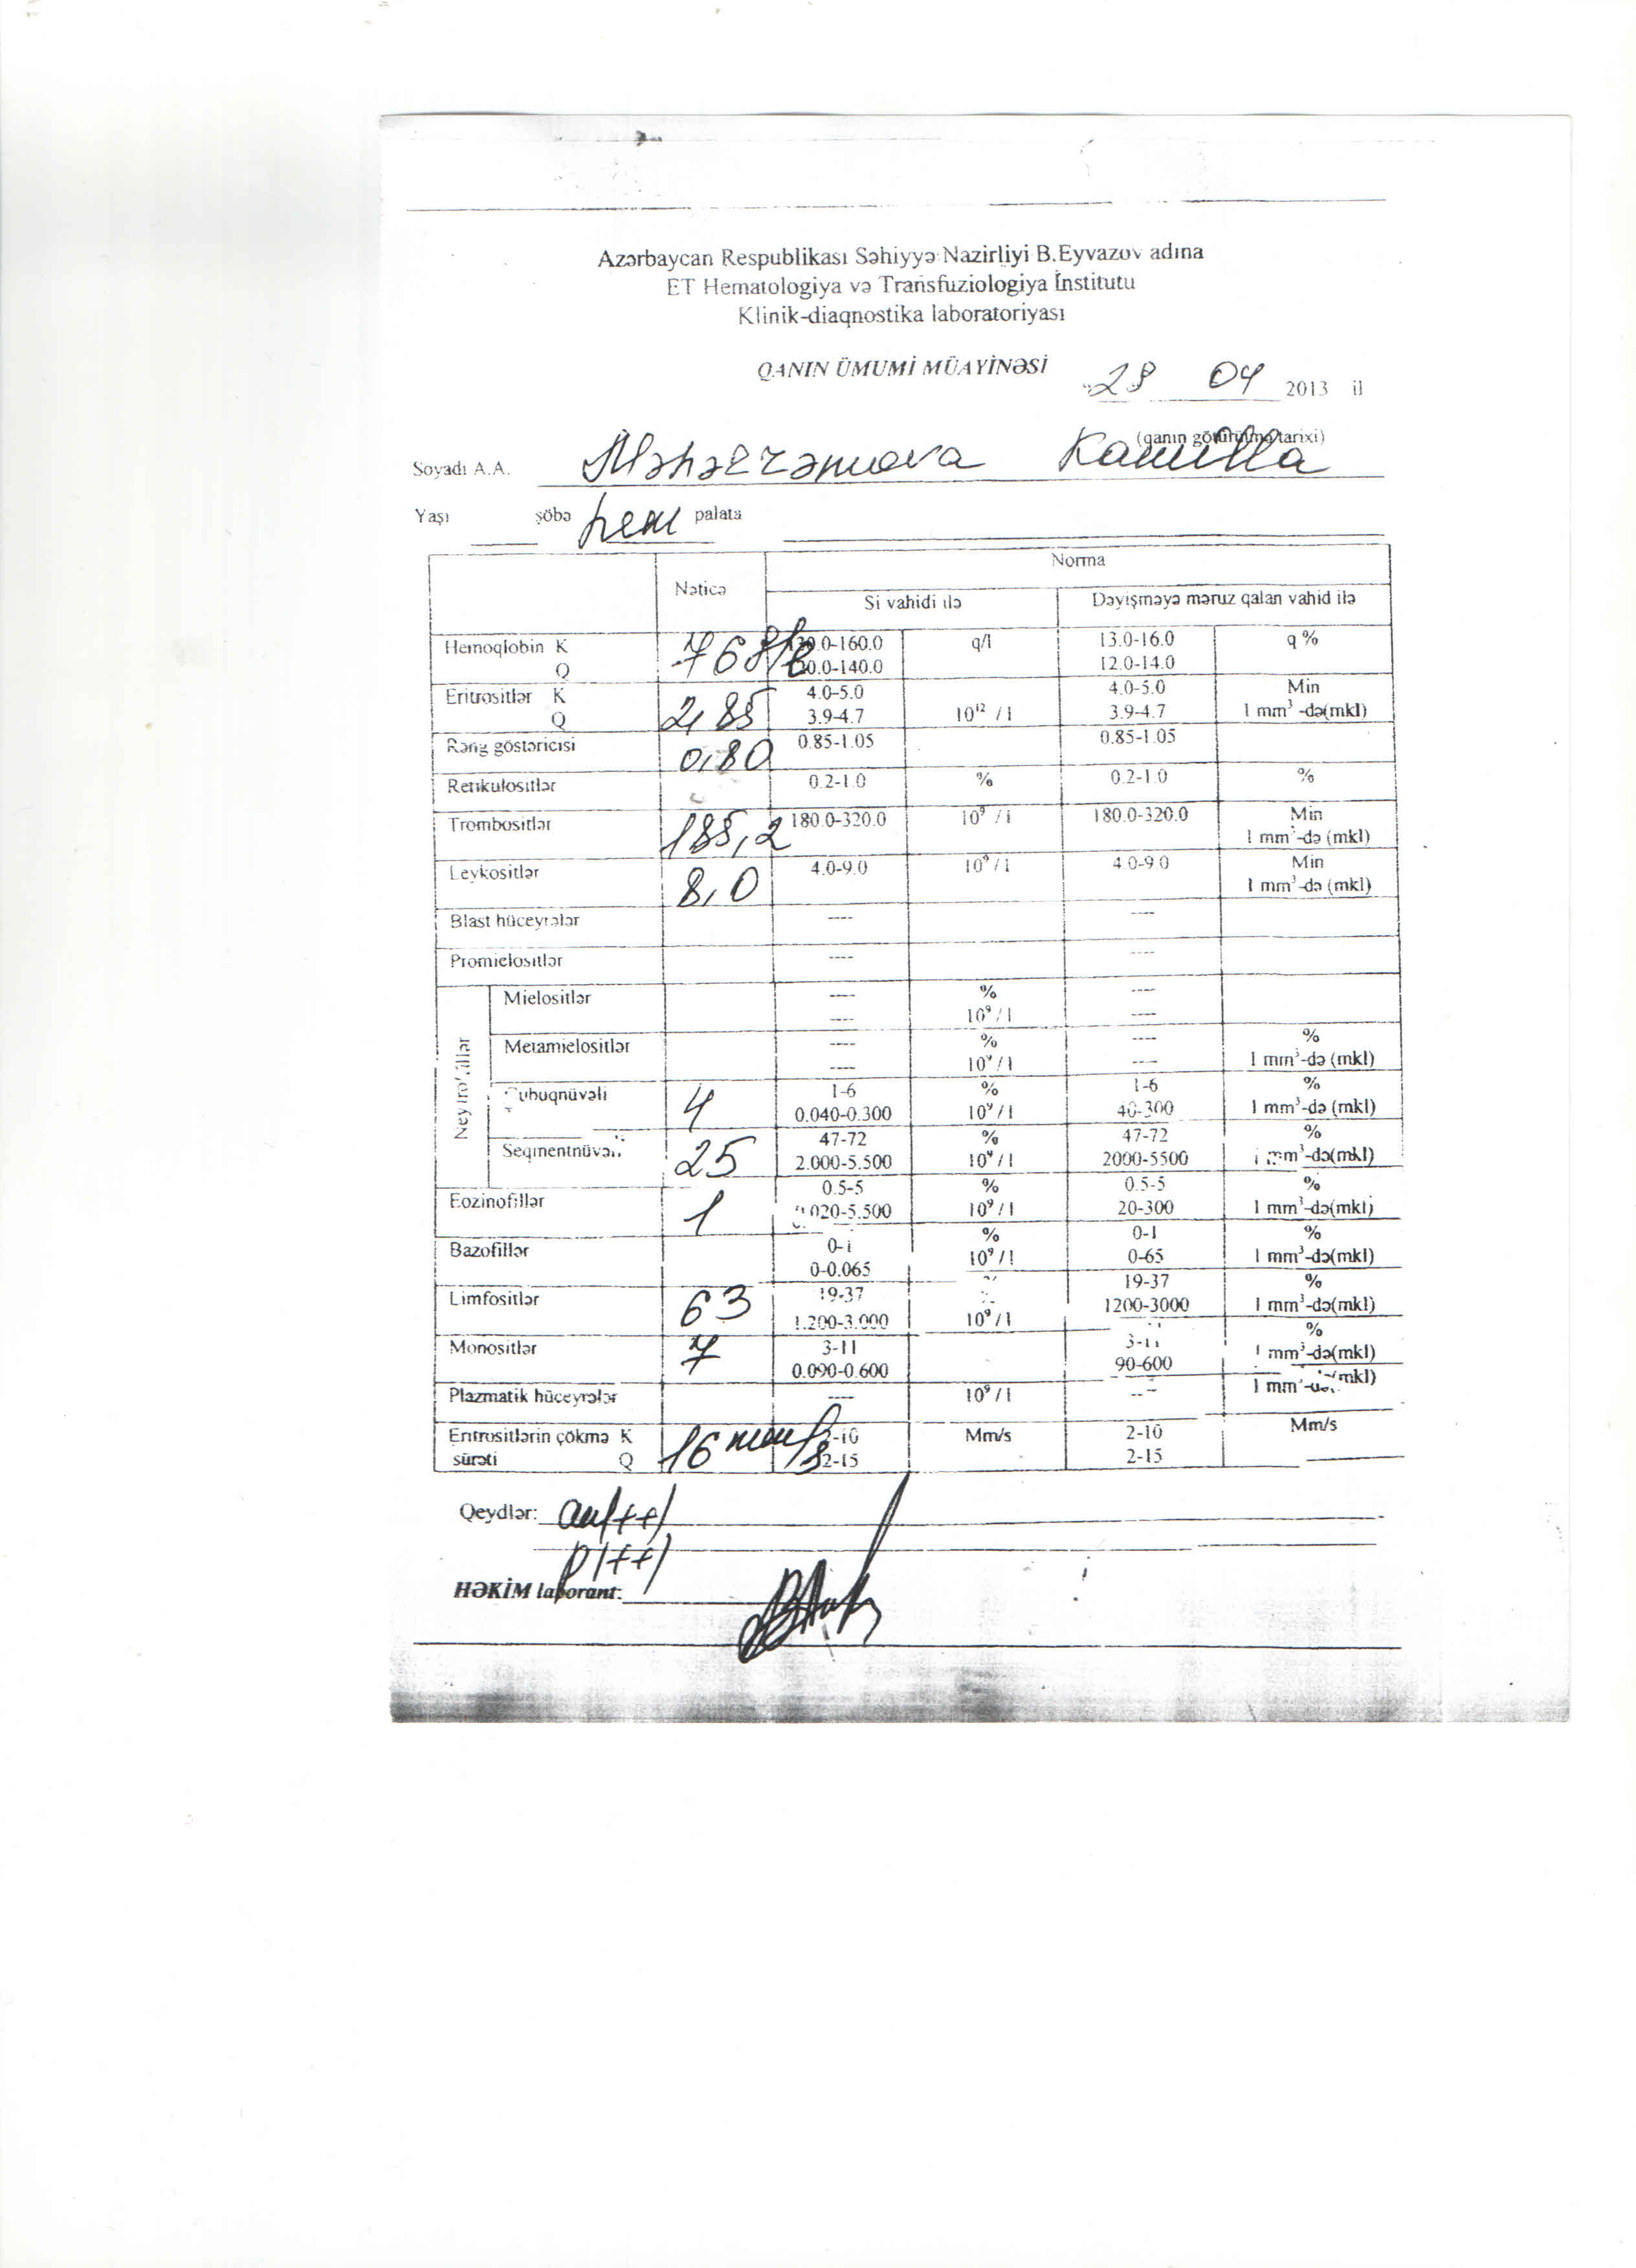 Azərbaycan Respublikası Səhiyyə Nazirliyi B.Eyvazov adına
ET Hematologiya və Transfuziologiya İnstitutu
Klinik-diaqnostika laboratoriyası
QANIN ÜMUMİ MÜAYİNƏSİ
"28 04 2013 il
(qanın götürülmə tarixi)
Soyadı A.A. Kamilla
Yaşı şöbə palata
Nəticə Norma
Si vahidi ilə Dəyişməyə məruz qalan vahid ilə
Hemoqlobin K 76 g/l 130.0-160.0 q/l 13.0-16.0 q %
Q 120.0-140.0 12.0-14.0
Eritrositlər K 2,85 4.0-5.0 4.0-5.0 Min
Q 3.9-4.7 10¹² /l 3.9-4.7 1 mm³ -də(mkl)
Rəng göstəricisi 0,80 0.85-1.05 0.85-1.05
Retikulositlər 0.2-1.0 % 0.2-1.0 %
Trombositlər 185,2 180.0-320.0 10⁹ /l 180.0-320.0 Min
1 mm³-də (mkl)
Leykositlər 8,0 4.0-9.0 10⁹ /l 4.0-9.0 Min
1 mm³-də (mkl)
Blast hüceyrələr ---- ----
Promielositlər ---- ----
Neytrofillər
Mielositlər ---- % ----
---- 10⁹ /l ----
Metamielositlər ---- % ---- %
---- 10⁹ /l ---- 1 mm³-də (mkl)
Çubuqnüvəli 4 1-6 % 1-6 %
0.040-0.300 10⁹ /l 40-300 1 mm³-də (mkl)
Seqmentnüvəli 25 47-72 % 47-72 %
2.000-5.500 10⁹ /l 2000-5500 1 mm³-də(mkl)
Eozinofillər 1 0.5-5 % 0.5-5 %
0.020-5.500 10⁹ /l 20-300 1 mm³-də(mkl)
Bazofillər 0-1 % 0-1 %
0-0.065 10⁹ /l 0-65 1 mm³-də(mkl)
Limfositlər 63 19-37 % 19-37 %
1.200-3.000 10⁹ /l 1200-3000 1 mm³-də(mkl)
Monositlər 7 3-11 3-11 %
0.090-0.600 90-600 1 mm³-də(mkl)
Plazmatik hüceyrələr ---- 10⁹ /l ---- 1 mm³-də(mkl)
Eritrositlərin çökmə K 16 mm/s 2-10 Mm/s 2-10 Mm/s
sürəti Q 2-15 2-15
Qeydlər:
HƏKİM laborant: